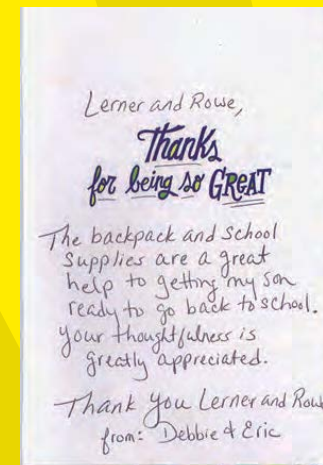 Lerner and Rowe,
Thanks
for being so GREAT
The backpack and School
Supplies are a great
help to getting my son
ready to go back to school.
Your thoughtfulness is
greatly appreciated.
Thank You Lerner and Rowe
from: Debbie & Eric